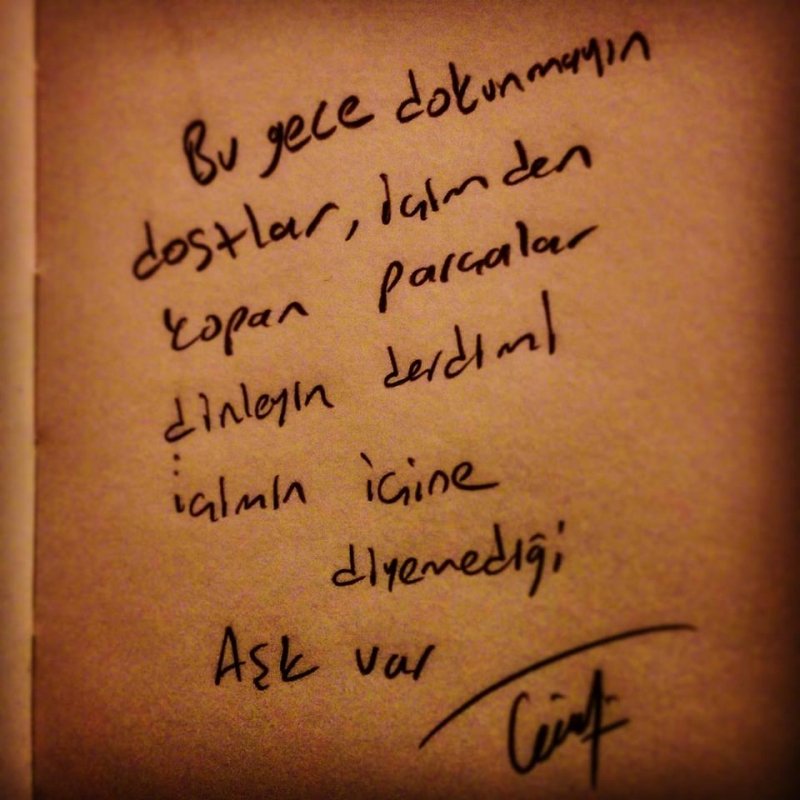 Bu gece dokunmayın
dostlar, içimden
kopan parçalar
dinleyin derdimi
içimin içine
diyemediği
Aşk var